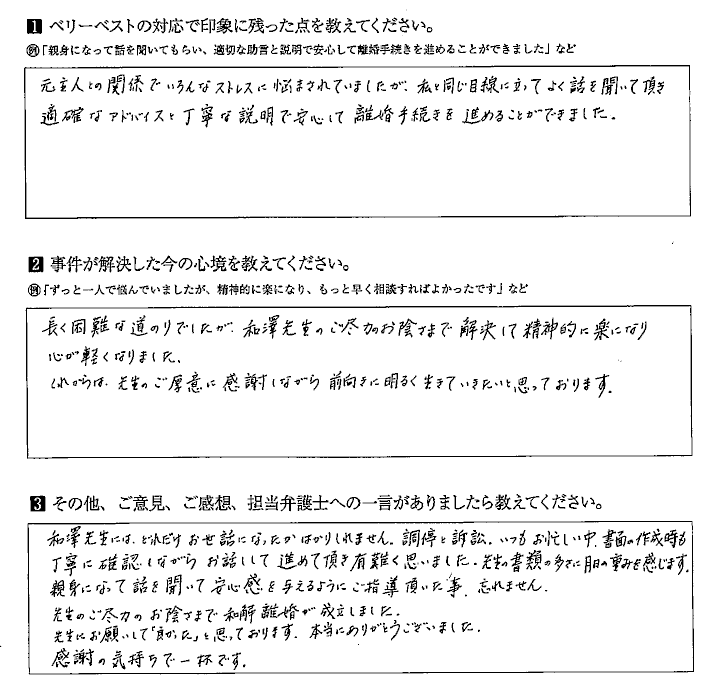 1 ベリーベストの対応で印象に残った点を教えてください。
例「親身になって話を聞いてもらい、適切な助言と説明で安心して離婚手続きを進めることができました」など
元主人との関係でいろんなストレスに悩まされていましたが、私と同じ目線に立ってよく話を聞いて頂き
適確なアドバイスと丁寧な説明で安心して離婚手続きを進めることができました。
2 事件が解決した今の心境を教えてください。
例「ずっと一人で悩んでいましたが、精神的に楽になり、もっと早く相談すればよかったです」など
長く困難な道のりでしたが、和澤先生のご尽力のお陰さまで解決して精神的に楽になり
心が軽くなりました。
これからは、先生のご厚意に感謝しながら前向きに明るく生きていきたいと思っております。
3 その他、ご意見、ご感想、担当弁護士への一言がありましたら教えてください。
和澤先生には、どれだけお世話になったかはかりしれません。調停と訴訟、いつもお忙しい中、書面の作成時も
丁寧に確認しながらお話しして進めて頂き有難く思いました。先生の書類の多さに月日の重みを感じます。
親身になって話を聞いて安心感を与えるようにご指導頂いた事、忘れません。
先生のご尽力のお陰さまで和解離婚が成立しました。
先生にお願いして「良かった」と思っております。本当にありがとうございました。
感謝の気持ちで一杯です。